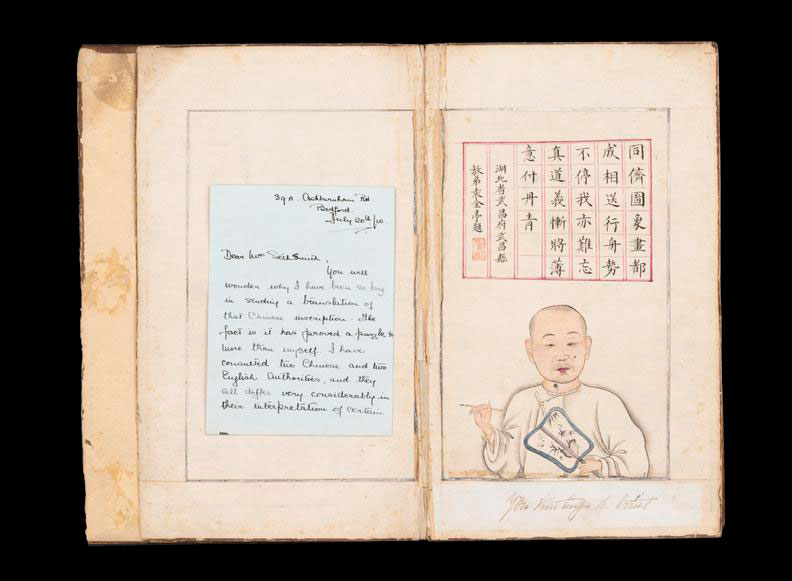 39A. Ashburnham Rd.
Bedford.
July 20th/10.
Dear Mrs Seth Smith,
You will
wonder why I have been so long
in sending a translation of
that Chinese inscription. The
fact is it has proved a puzzle to
more than myself. I have
consulted two Chinese and two
English Authorities, and they
all differ very considerably in
their interpretation of certain
同儕圖象畫都
成相送行舟勢
不停我亦難忘
真道義慚將薄
意付丹青
湖北省武昌府武昌縣
教弟袁金亭題
the Artist